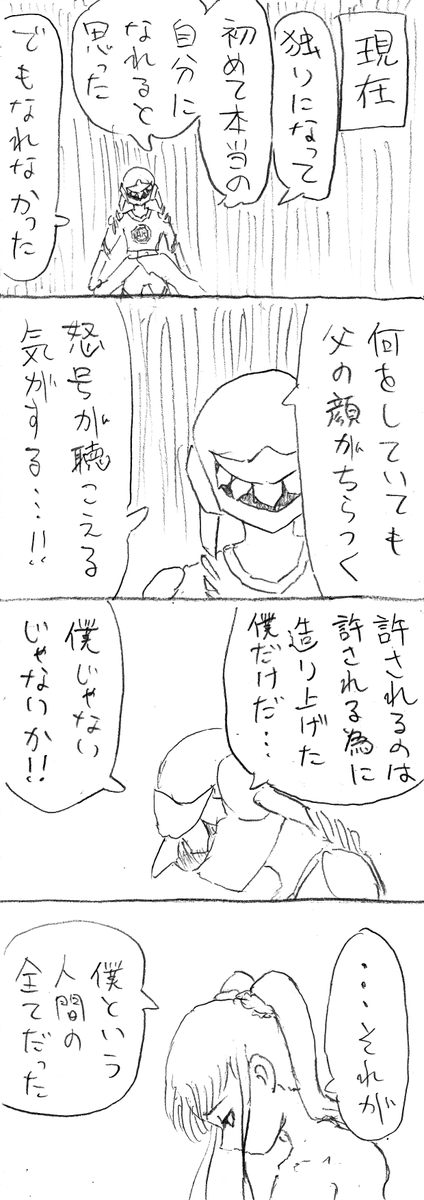 現在
独りになって
初めて本当の
自分に
なれると
思った
でもなれなかった
何をしていても
父の顔がちらつく
怒号が聴こえる
気がする…!!
許されるのは
許される為に
造り上げた
僕だけだ…
僕じゃない
じゃないか!!
…それが
僕という
人間の
全てだった